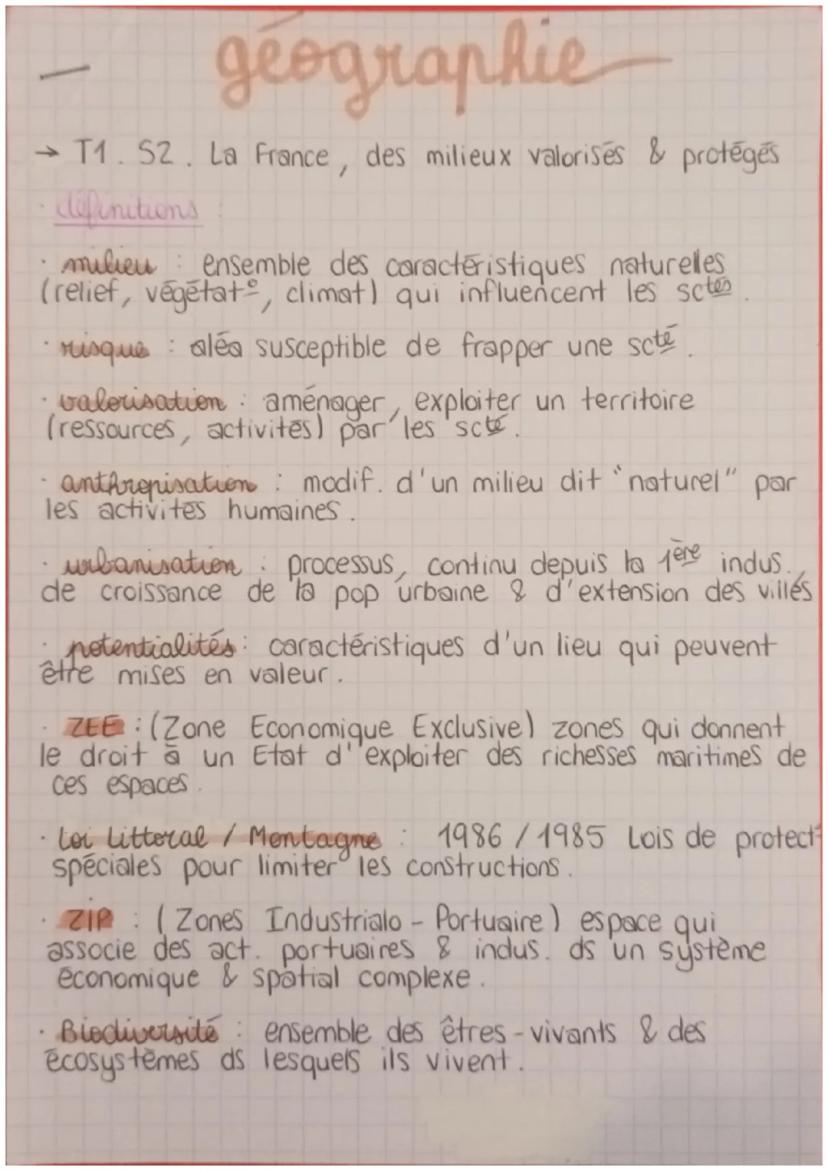 géographie
→ T1. S2. La France, des milieux valorisés & protégés
· définitions :
· milieu : ensemble des caractéristiques naturelles
(relief, végétat°, climat) qui influencent les sctés.
· risque : aléa susceptible de frapper une scté.
· valorisation : aménager, exploiter un territoire
(ressources, activités) par les scté.
· anthropisation : modif. d'un milieu dit "naturel" par
les activités humaines.
· urbanisation : processus, continu depuis la 1ère indus.,
de croissance de la pop urbaine & d'extension des villes
· potentialités : caractéristiques d'un lieu qui peuvent
être mises en valeur.
· ZEE : (Zone Economique Exclusive) zones qui donnent
le droit à un Etat d'exploiter des richesses maritimes de
ces espaces.
· Loi Littoral / Montagne : 1986 / 1985 Lois de protect°
spéciales pour limiter les constructions.
· ZIP : (Zones Industrialo - Portuaire) espace qui
associe des act. portuaires & indus. ds un système
économique & spatial complexe.
· Biodiversité : ensemble des êtres-vivants & des
écosystèmes ds lesquels ils vivent.